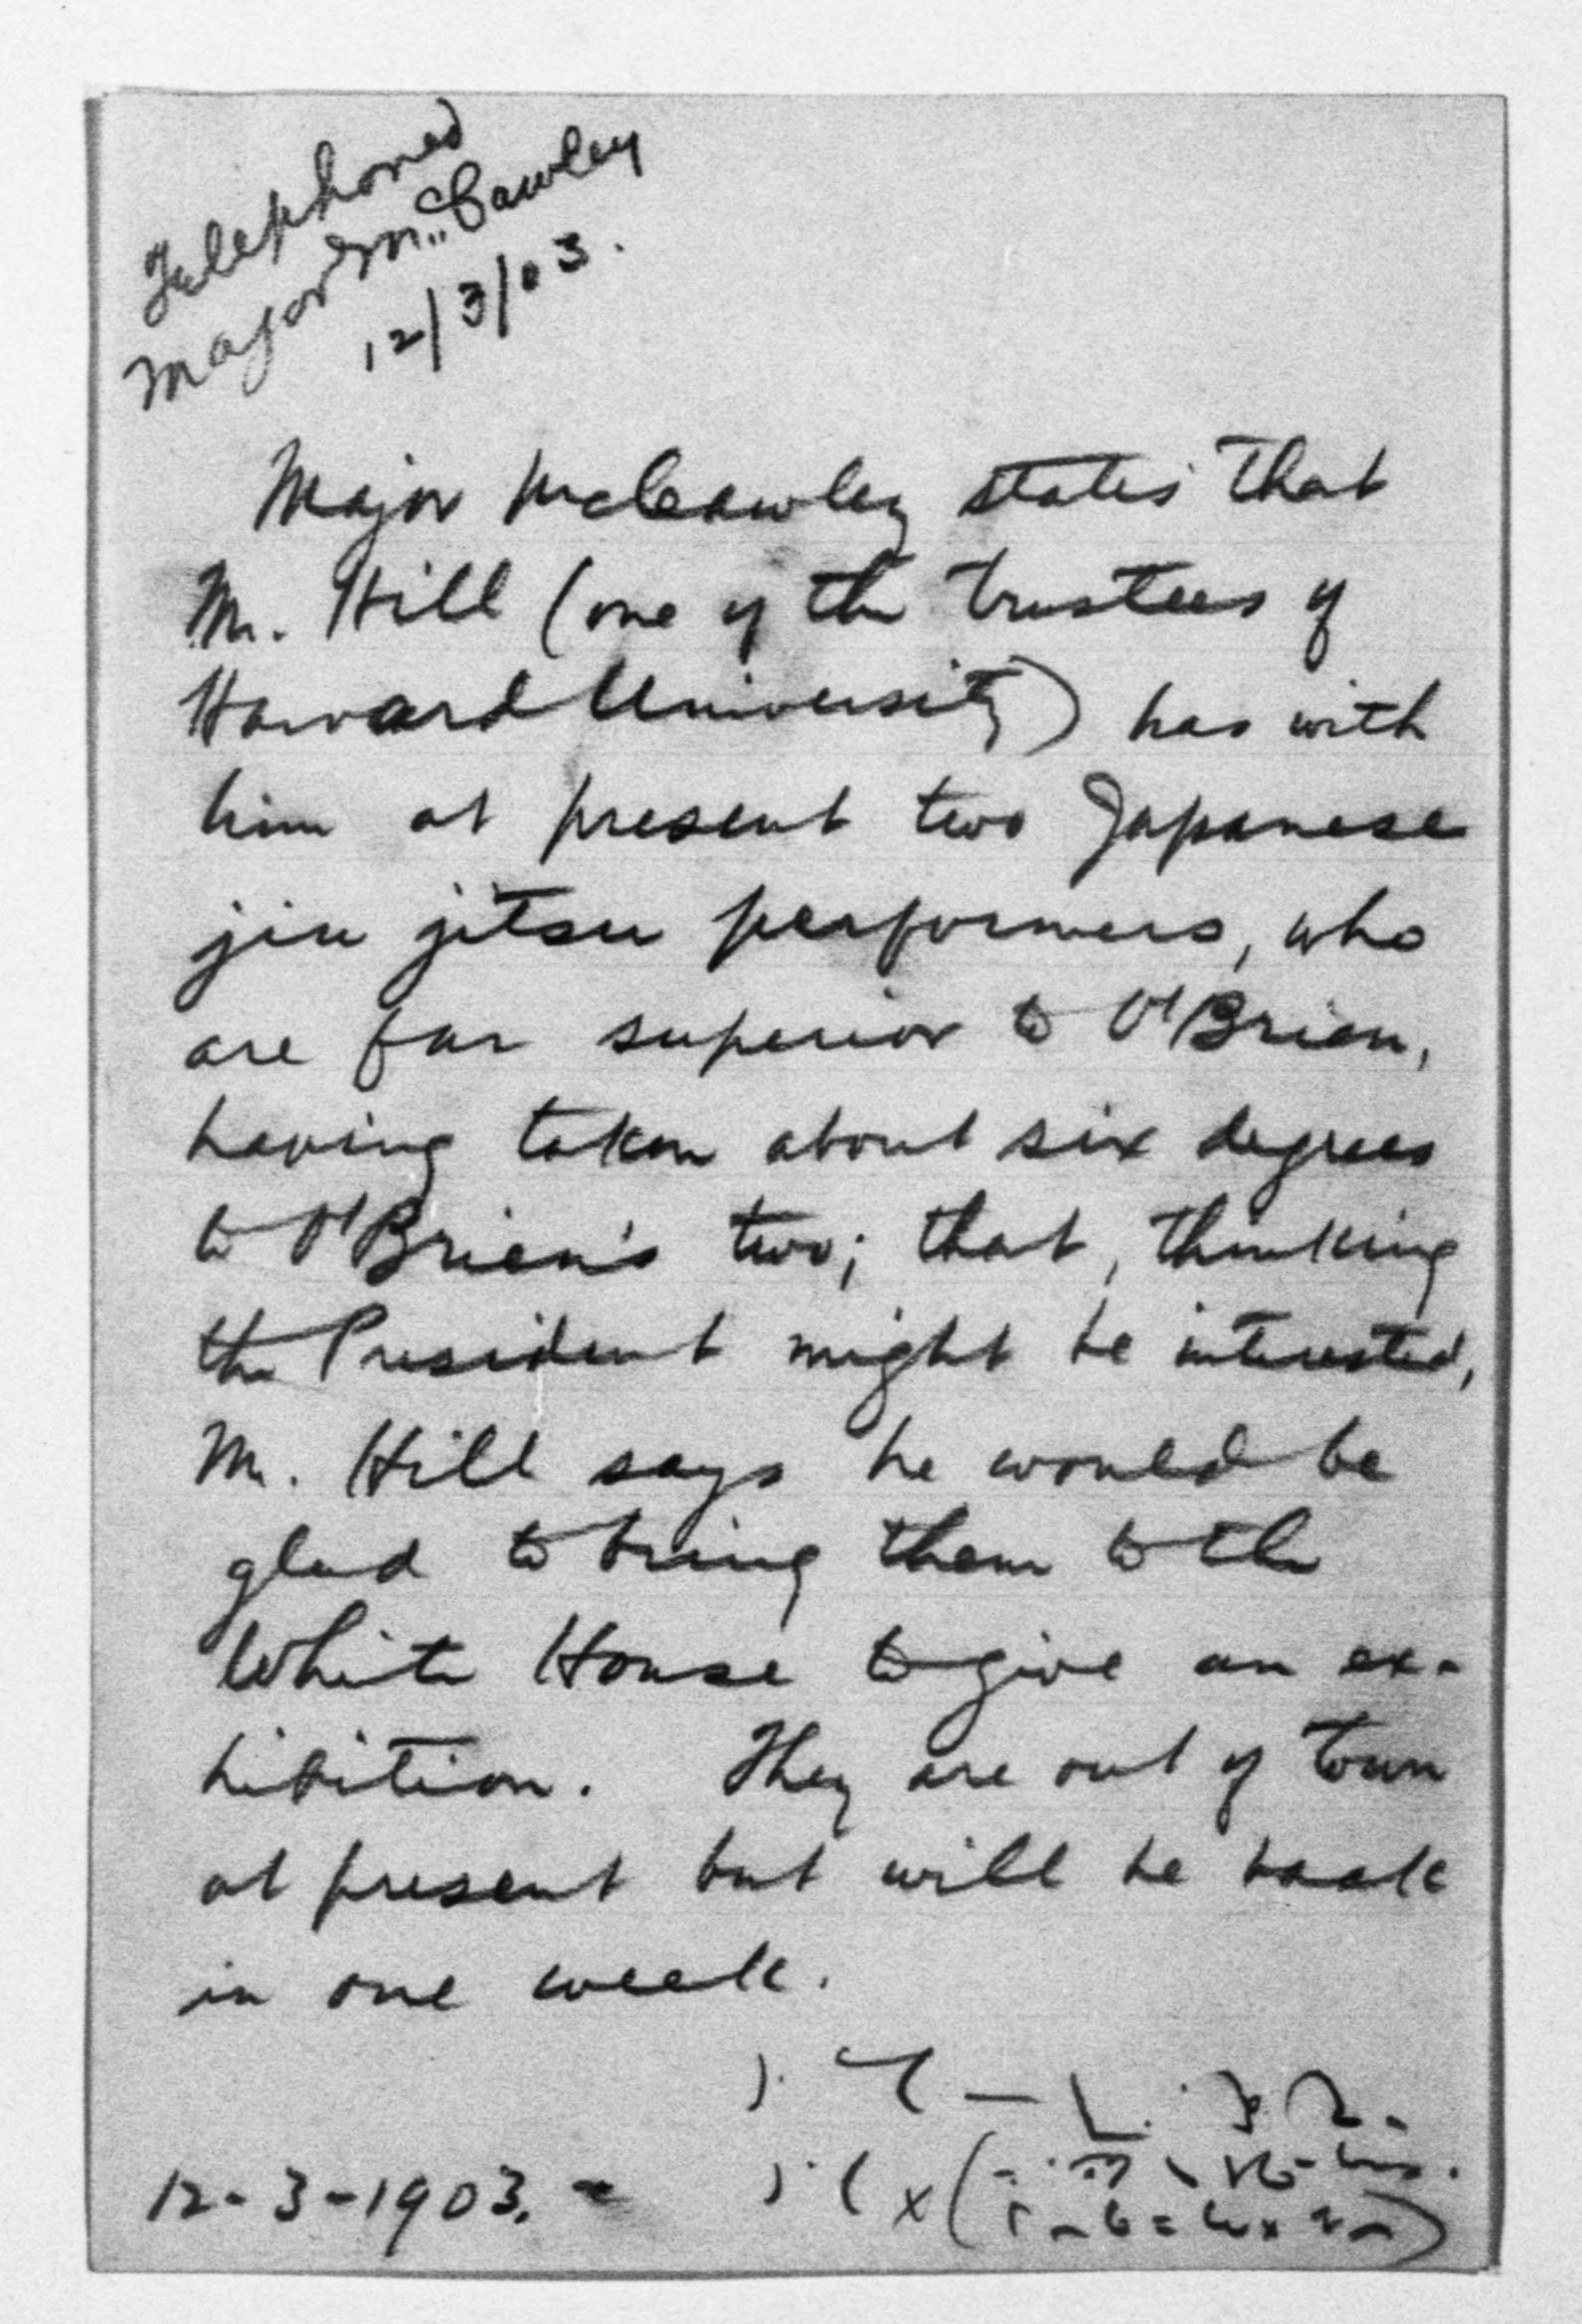 Telephoned
Major McCawley
12/3/03.
Major McCawley states that
Mr. Hill (one of the trustees of
Howard University) has with
him at present two Japanese
jiu jitsu performers, who
are far superior to O'Brien,
having taken about six degrees
to O'Brien's two; that, thinking
the President might be interested,
Mr. Hill says he would be
glad to bring them to the
White House to give an ex-
hibition. They are out of town
at present but will be back
in one week.
12-3-1903.